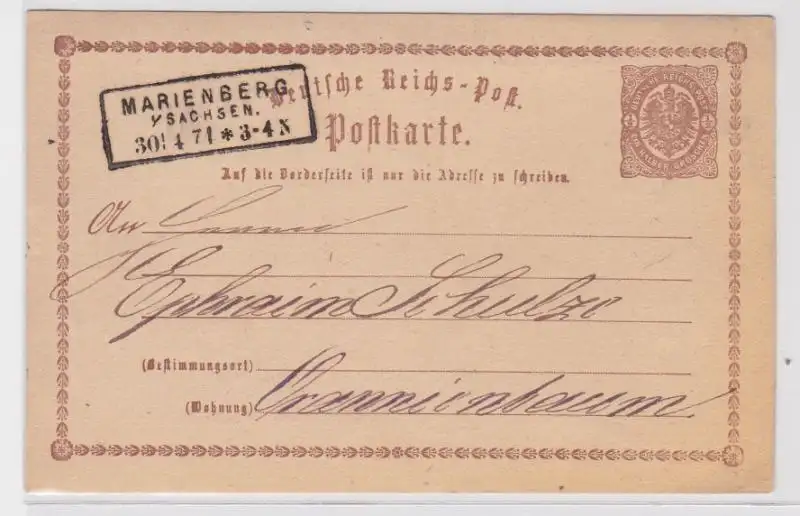 MARIENBERG
I/SACHSEN.
30! 4 71 * 3-4 N
Deutsche Reichs-Post.
Postkarte.
Auf die Vorderseite ist nur die Adresse zu schreiben.
DEUTSCHE REICHS-POST
EIN HALBER GROSCHEN
An Herrn
Ephraim Schulze
(Bestimmungsort)
(Wohnung) Orannienbaum